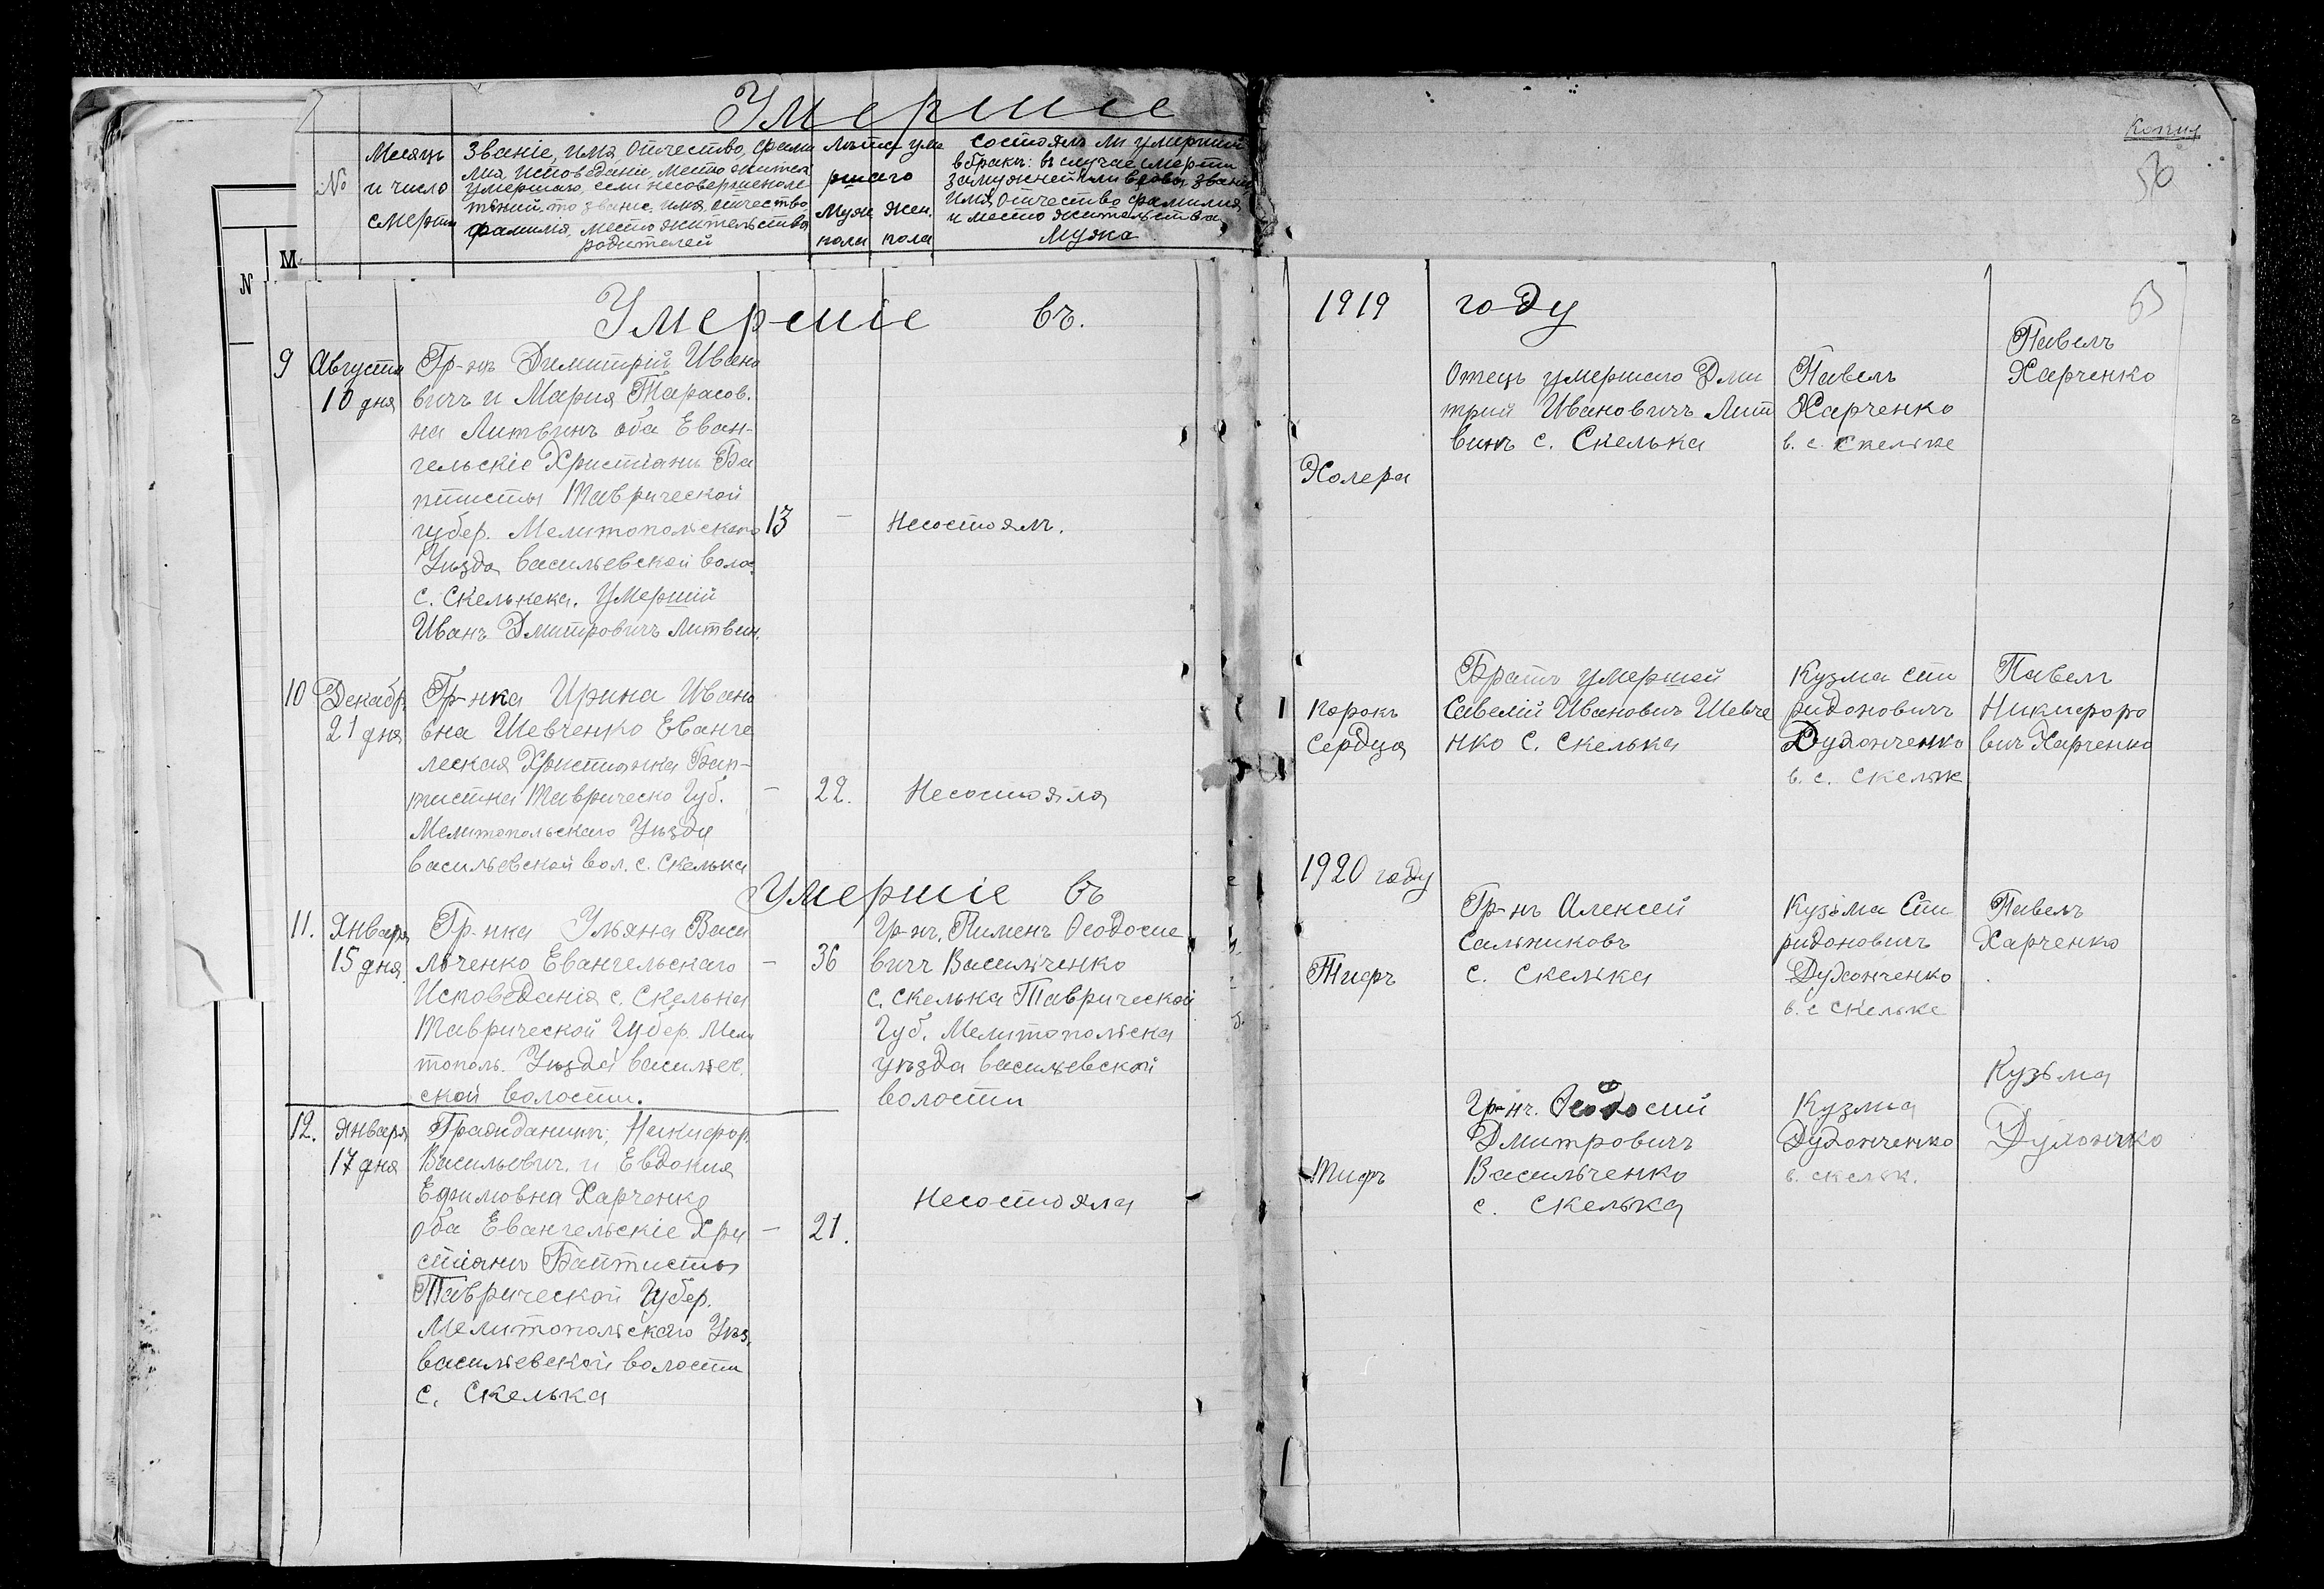 Умершіе
№
Месяцъ
и число
смерти
Званіе, имя, отчество, фами
лия, исповеданіе, место жител
умершаго, если несовершенноле
тний, то званіе, имя, отчество
фамилия, место жительство
родителей
Лѣта уме
ршаго
Муж
пола
Жен.
пола
Состоялъ ли умерший
въ бракѣ: въ случае смерти
замужней или вдовы звание
имя, отчество фамилия,
и место жительства
Мужа
Копия
56
N
М
Умершіе въ.
1919 году
9
Августа
10 дня
Гр-нъ Димитрій Ивано
вичъ и Мария Тарасов.
на Литвинъ оба Еван-
гельскіе Христіани Ба
птисты Таврической
губер. Мелитопольскаго
Уѣзда Васильевской воло.
с. Скелькека. Умершій
Иванъ Дмитровичъ Литвин.
13
—
Несостоялъ.
Холера
Отецъ умершаго Дми
трий Ивановичъ Лит
винъ с. Скелька
Павелъ
Харченко
в. с. Скельке
Павелъ
Харченко
10
Декабр.
21 дня
Гр-нка Ирина Ивано
вна Шевченко Еванге
леская Християнка Бап-
тистка Таврическо Губ.
Мелитопольскаго Уѣзда
Васильевской вол. с. Скелька
—
22.
Несостояла
Порокъ
Сердца
Братъ умершей
Савелій Ивановичъ Шевче
нко с. Скелька
Кузма Спи
ридоновичъ
Дудонченко
в. с. Скельк
Павелъ
Никифоро
вич Харченко
Умершіе въ
1920 году
11.
Января
15 дня
Гр-нка Ульяна Васи
льченко Евангельскаго
Исповеданія с. Скелька
Таврической Губер. Мели
тополь. Уѣзда Васильев.
ской волости.
—
36
Гр-нъ. Пименъ Ѳеодосие
вичъ Васильченко
с. Скелька Таврической
Губ. Мелитопольска
уѣзда Васильевской
волости
Тифъ
Гр-нъ Алексей
Сальниковъ
с. Скелька
Кузьма Спи
ридоновичъ
Дудонченко
в. с Скельке
Павелъ
Харченко
12.
Января
17 дня
Гражданинъ; Никифор.
Васильевич. и Евдокия
Ефимовна Харченко
оба Евангельскіе Хри
стіани Баптисты
Таврической Губер.
Мелитопольскаго Уѣз.
Васильевской волости
с. Скелька
—
21.
Несостояла
Тифъ
Гр-нъ. Ѳеодосий
Дмитровичъ
Васильченко
с. Скелька
Кузма
Дудонченко
в. скельк.
Кузьма
Дудончко